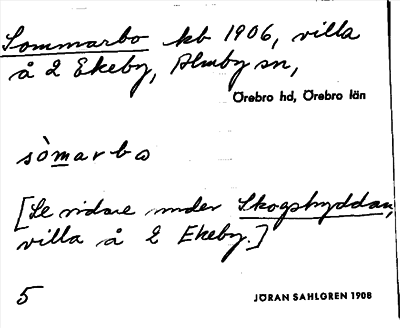 Sommarbo kb 1906, villa
å 2 Ekeby, Almby sn,
Örebro hd, Örebro län
sòmarbo
[Se vidare under Skogshyddan,
villa å 2 Ekeby.]
5
JÖRAN SAHLGREN 1908